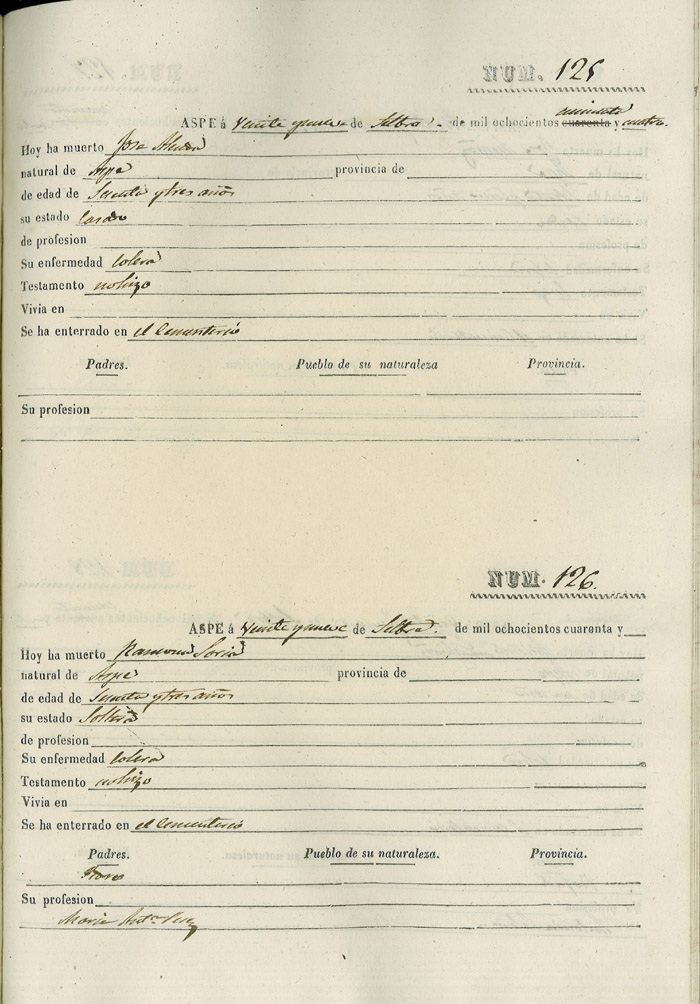 NUM. 125
ASPE á Veinte y nueve de Setbre. de mil ochocientos cuarenta cincuenta y cuatro.
Hoy ha muerto Jose
natural de Aspe provincia de
de edad de Setenta y tres años
su estado Casado
de profesion
Su enfermedad Colera
Testamento no hizo
Vivia en
Se ha enterrado en el Cementerio
Padres. Pueblo de su naturaleza Provincia.
Su profesion
NUM. 126.
ASPE á Veinte y nueve de Setbre. de mil ochocientos cuarenta y
Hoy ha muerto Ramona Soria
natural de Aspe provincia de
de edad de Setenta y tres años
su estado Soltera
de profesion
Su enfermedad Colera
Testamento no hizo
Vivia en
Se ha enterrado en el Cementerio
Padres. Pueblo de su naturaleza. Provincia.
Su profesion
Maria Anta.